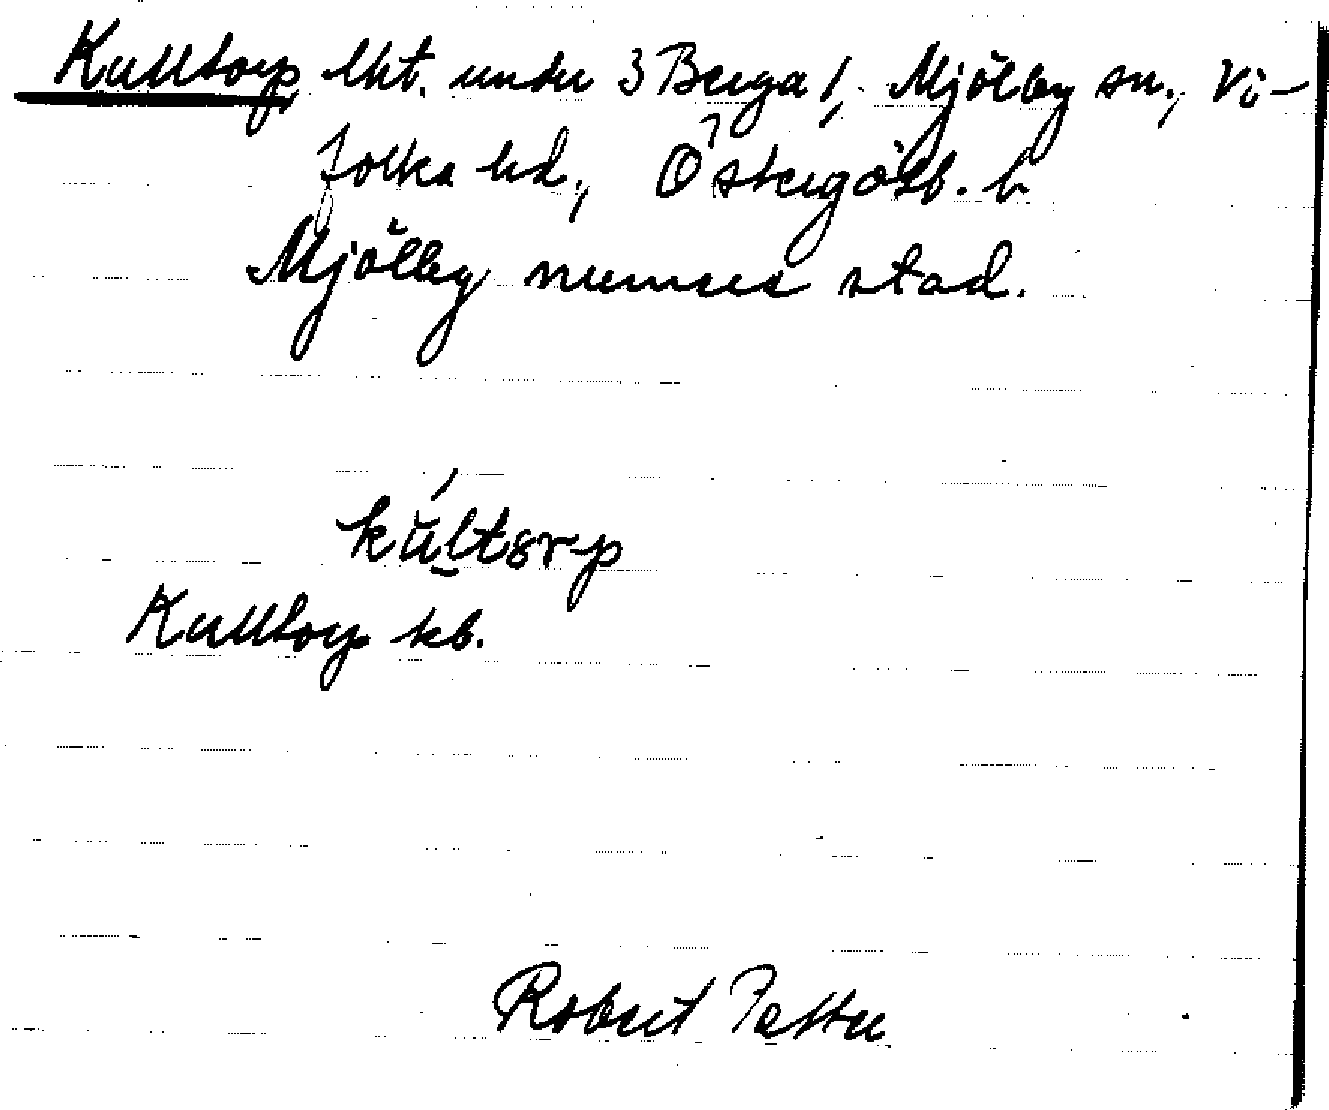 Kulltorp lht. under 3 Berga /, Mjölby sn., Vi-
folka hd., Östergötl. l.
Mjölby numera stad.
kúltorp
Kulltorp kb.
Robert